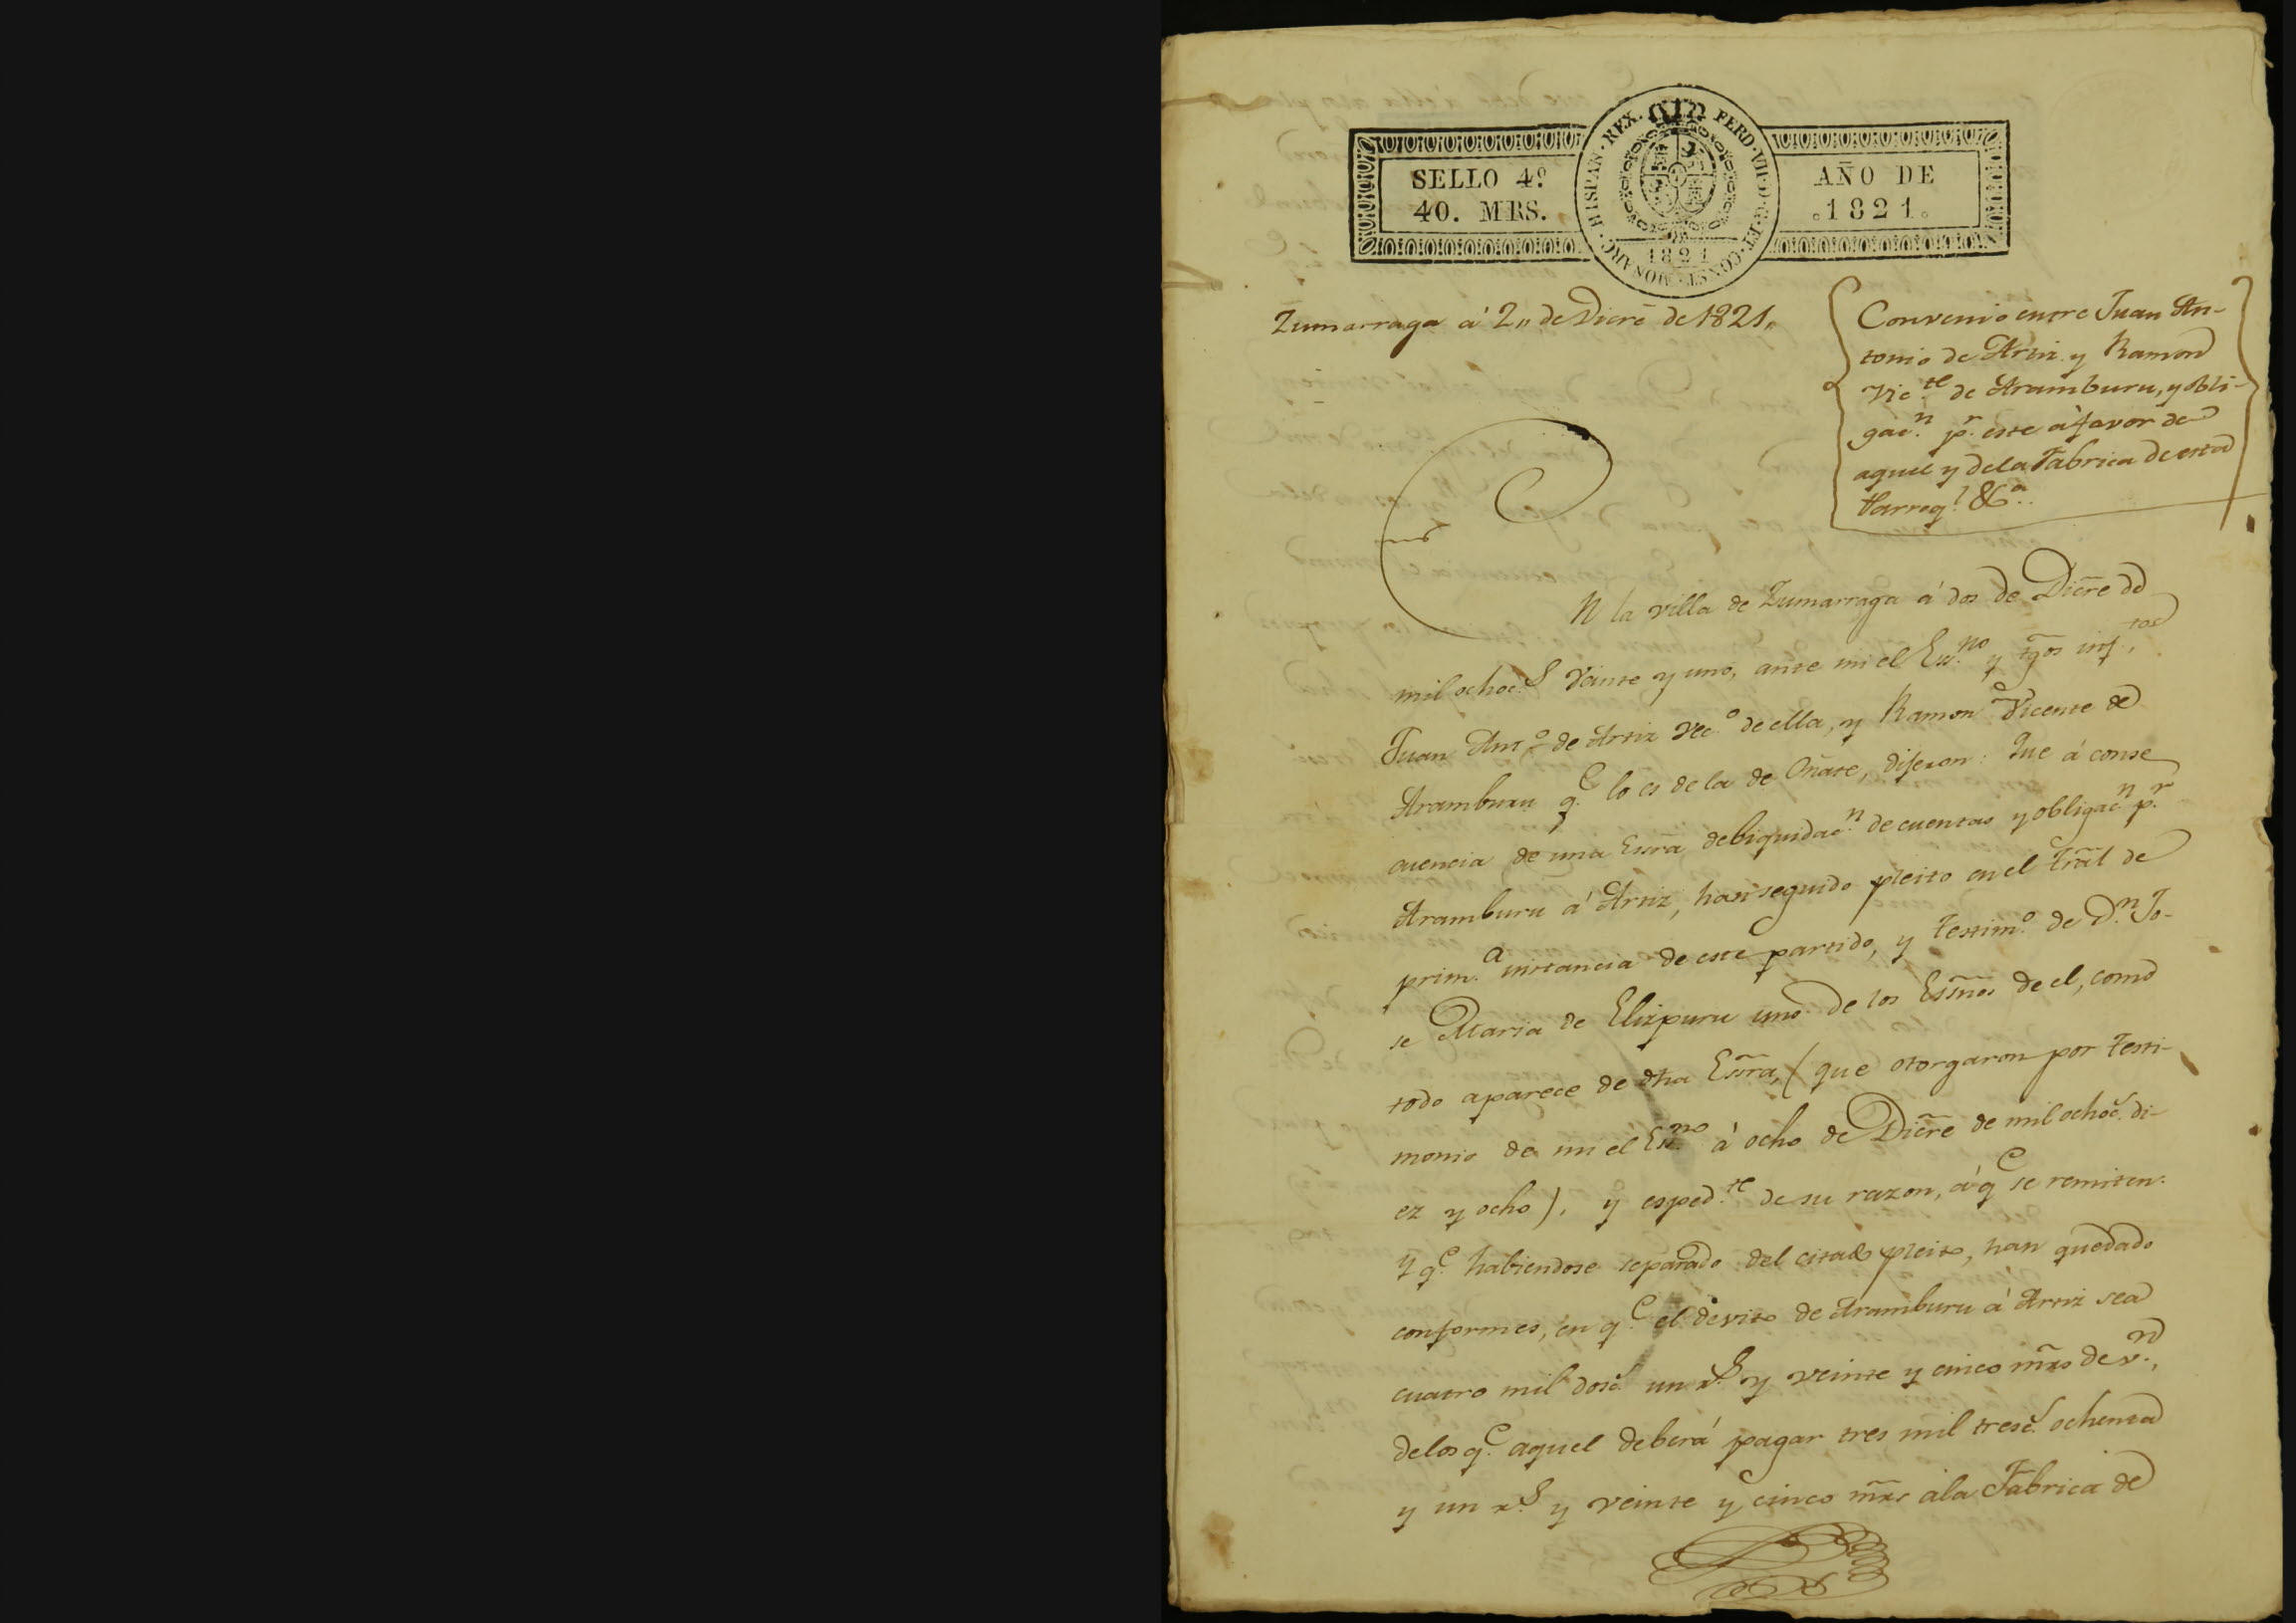 SELLO 4º
40. MRS.
HISPAN·REX. FERD·VII·D·G·ET·CONST·MONARC·
1821
AÑO DE
1821
Zumarraga á 2,, de Dicrẽ de 1821,,
Convenio entre Juan An-
tonio de Artiz y Ramon
Vic.te de Aramburu, y obli-
gac.n p.r este à favor de
aquel y de la Fabrica de esta
Parroq.l &a..
En la villa de Zumarraga á dos de Dicrẽ de
mil ochoc.s Veinte y uno, ante mi el Es.no y tg̃os inf.tos
Juan Ant.o de Artiz vec.o de ella, y Ramon Vicente de
Aramburu q.e lo es de la de Oñate, dijeron: Que á conse
cuencia de una Essrã de liquidac.n de cuentas y obligac.n p.r
Aramburu á Artiz, han seguido pleito en el Trãl de
prim.a instancia de este partido, y testim.o de D.n Jo-
se Maria de Elizpuru uno de los Essños de el, como
todo aparece de dha Essrã, (que otorgaron por testi-
monio de mi el Es.no à ocho de Dicrẽ de mil ochoc.s di-
ez y ocho), y esped.te de su razon, á q.e se remiten.
Y q.e habiendose separado del citado pleito, han quedado
conformes, en q.e el devito de Aramburu á Artiz sea
cuatro mil dosc.s un r.s y veinte y cinco mr̃s de v.n,
de los q.e aquel deberá pagar tres mil tresc.s ochenta
y un r.s y veinte y cinco mr̃s à la Fabrica de